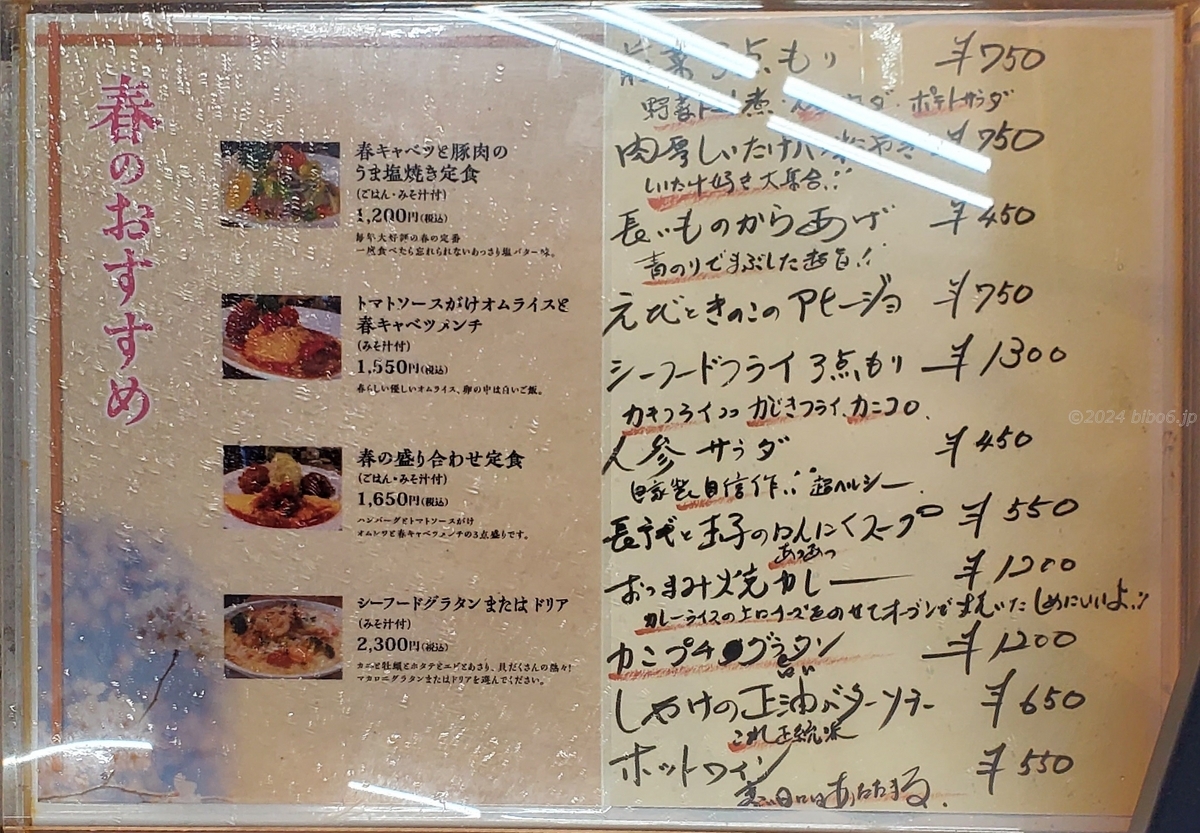 春のおすすめ
春キャベツと豚肉の
うま塩焼き定食
(ごはん・みそ汁付)
1,200円(税込)
毎年大好評の春の定番
一度食べたら忘れられないあっさり塩バター味。
トマトソースがけオムライスと
春キャベツメンチ
(みそ汁付)
1,550円(税込)
春らしい優しいオムライス、卵の中は白いご飯。
春の盛り合わせ定食
(ごはん・みそ汁付)
1,650円(税込)
ハンバーグとトマトソースがけ
オムレツと春キャベツメンチの3点盛りです。
シーフードグラタン または ドリア
(みそ汁付)
2,300円(税込)
カニと牡蠣とホタテとエビとあさり、具だくさんの熱々!
マカロニグラタンまたはドリアを選んでください。
前菜3点もり ¥750
野菜トマト煮・ ・ポテトサラダ
肉厚しいたけ ¥750
しいたけ好き大集合!!
長いものからあげ ¥450
青のりでまぶした超旨!!
えびときのこのアヒージョ ¥750
シーフードフライ3点もり ¥1300
カキフライ2コ かじきフライ, カニコロ.
人参サラダ ¥450
自家製 自信作!! 超ヘルシー.
長ネギと玉子のにんにくスープ ¥550
あつあつ
おつまみ焼カレー ¥1200
カレーライスの上にチーズをのせてオーブンで焼いた しめにいいよ!!
カニプチグラタン ¥1200
旨い
しゃけの正油バターソテー ¥650
これ正統派
ホットワイン ¥550
寒い日にはあたたまる.
©2024 bibo6.jp